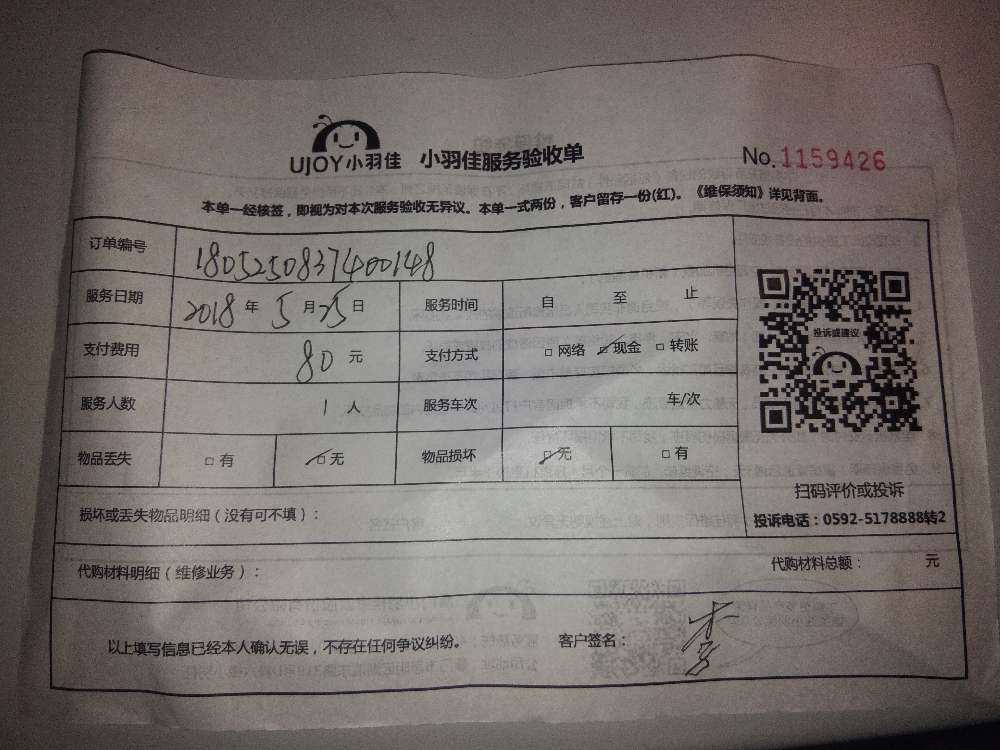 UJOY小羽佳 小羽佳服务验收单 No.1159426
本单一经核签，即视为对本次服务验收无异议。本单一式两份，客户留存一份(红)。《维保须知》详见背面。
订单编号 1805250837400148
服务日期 2018 年 5 月 25 日 服务时间 自 至 止
支付费用 80 元 支付方式 □网络 ☑现金 □转账
服务人数 1 人 服务车次 车/次
物品丢失 □有 ☑无 物品损坏 ☑无 □有
损坏或丢失物品明细（没有可不填）：
代购材料明细（维修业务）： 代购材料总额： 元
以上填写信息已经本人确认无误，不存在任何争议纠纷。 客户签名：
投诉或建议
扫码评价或投诉
投诉电话：0592-5178888转2